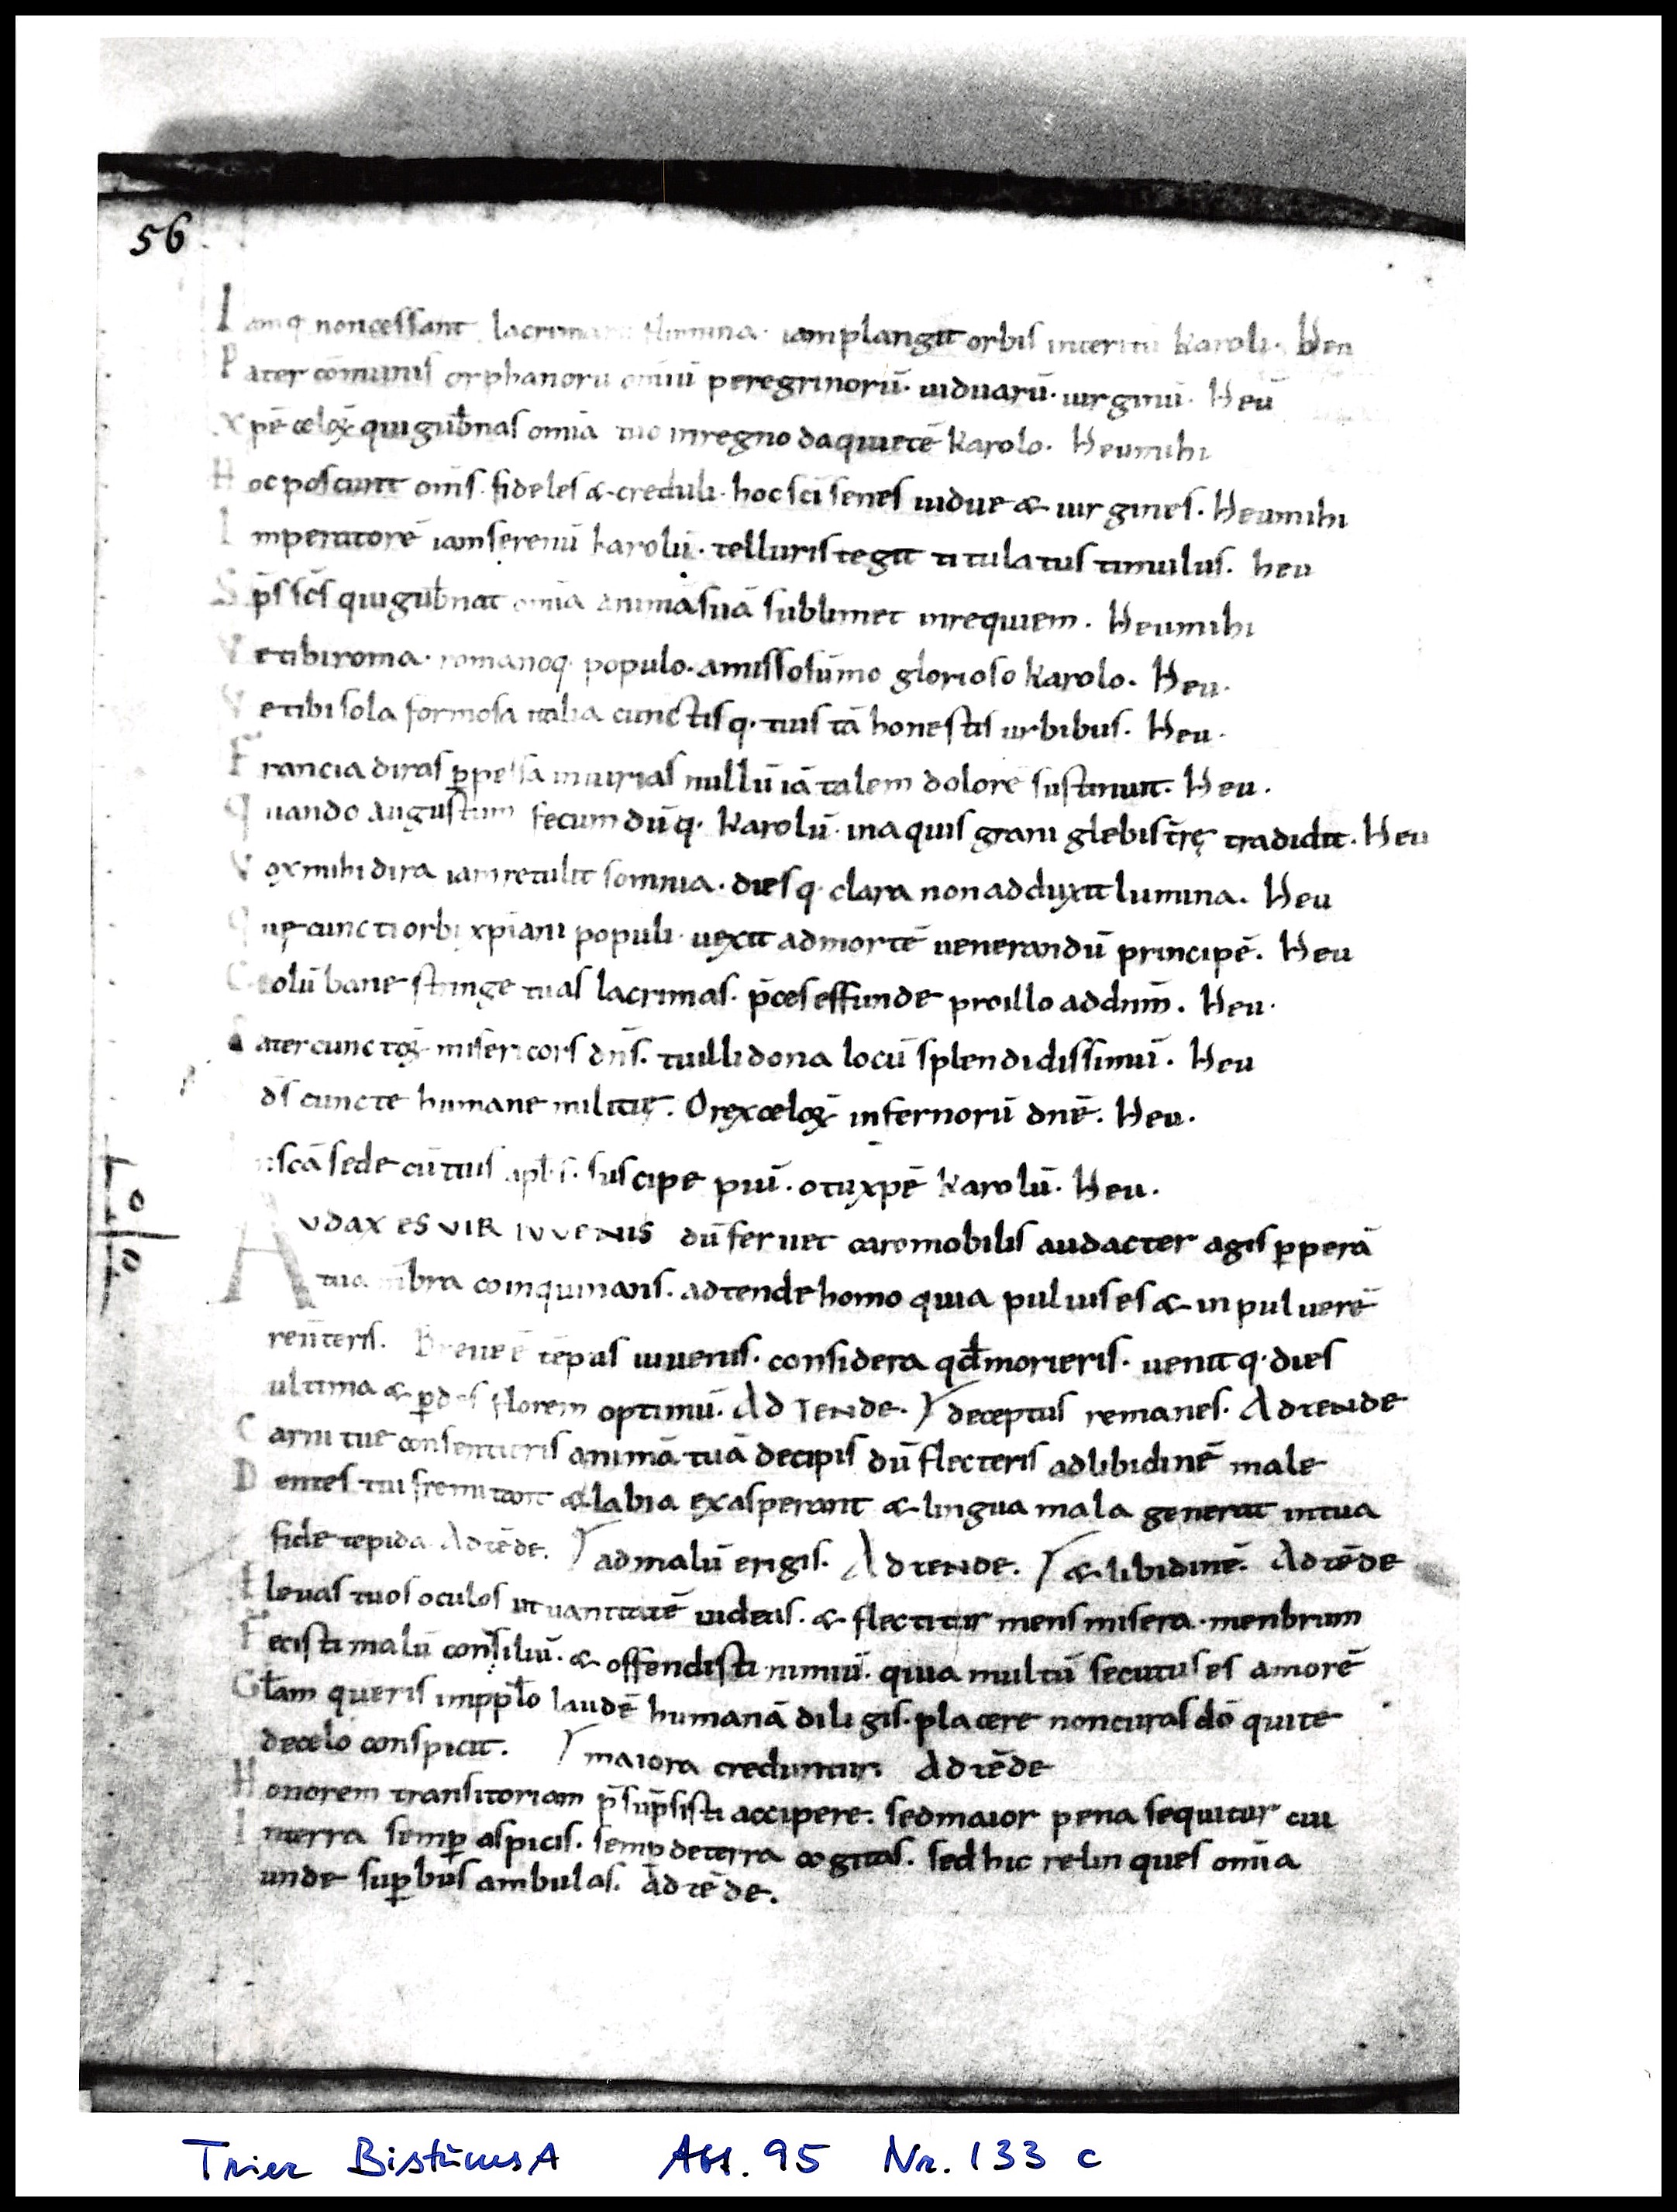 56
Iamq. non cessant lacrimarū flumina. iam plangit orbis interitū karoli. Heu
Pater cōmunis orphanorū omiū peregrinorū. uiduarū. uirginū. Heū
Xpē cęloꝝ qui gub̄nas om̄ia tuo inregno da quietē karolo. Heu mihi
Hoc poscunt om̄s. fideles & creduli. hoc sc̄i senes uidue & uirgines. Heu mihi
Imperatorē iam serenū karolū. telluris tegit titulatus tumulus. heu
Sp̄s sc̄s qui gub̄nat om̄ia animā suā sublimet inrequiem. Heu mihi
Ve tibi roma. romanoq. populo. amisso sūmo glorioso karolo. Heu.
Ve tibi sola formosa italia cunctisq. tuis tā honestis urbibus. Heu.
Francia diras ꝑpessa iniurias nullū iā talem dolorē sustinuit. Heu.
Quando augustum fecumdūq. karolū. in aquis grani glebis tr̄ę tradidit. Heu
Nox mihi dira iam retulit somnia. diesq. clara non adduxit lumina. Heu
Quę cuncti orbi xp̄iani populi. uexit ad mortē uenerandū principē. Heu
Colūbane stringe tuas lacrimas. p̄ces effunde pro illo ad dnm̄. Heu.
Pater cunctoꝝ misericors dn̄s. tu illi dona locū splendidissimū. Heu
ds̄ cuncte humane militię. O rex cęloꝝ infernorū dnē. Heu.
in scā sede cū tuis apl̄s. suscipe piū. o tu xpē karolū. Heu.
AVDAX ES VIR IVVENIS dū feruet caro mobilis audacter agis ꝑperā
tua mb̄ra coinquinans. adtende homo quia puluis es & in puluerē
reūteris. Breue ē tēpus iuuenis. considera qd̄ morieris. uenitq. dies
ultima & ꝑdes florem optimū. AdTENde. Y deceptus remanes. AdTENde
Carni tue consentieris animā tuā decipis dū flecteris ad libidinē male
Dentes tui fremitant & labia exasperant & lingua mala generat in tua
fide tepida. Adtēde. Y ad malū erigis. AdTENde. Y & libidinē. Adtēde
Eleuas tuos oculos ut uanitatē uideas. & flectitur mens misera. menbrum
Fecisti malū consiliū. & offendisti nimiū. quia multū secutus es amorē
Gl̄am queris inppl̄o laudē humanā diligis. placere non curas dō qui te
de celo conspicit. Y maiora creduntur. Adtēde
Honorem transitoriam p̄sūp̄sisti accipere. sed maior pena sequitur cui
In terra semꝑ aspicis. semꝑ de terra cogitas. sed hic relinques om̄ia
unde suꝑbus ambulas. Adtēde.
Trier BistumsA Abt. 95 Nr. 133 c